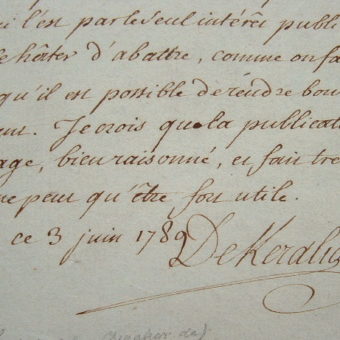 i l'est par le seul intérêt public
se hâter d'abattre, comme on fa
qu'il est possible de rendre bou
Je crois que la publicati
age, bien raisonné, et fait tre
ne peut qu'être fort utile.
ce 3 juin 1789 DeKeralio